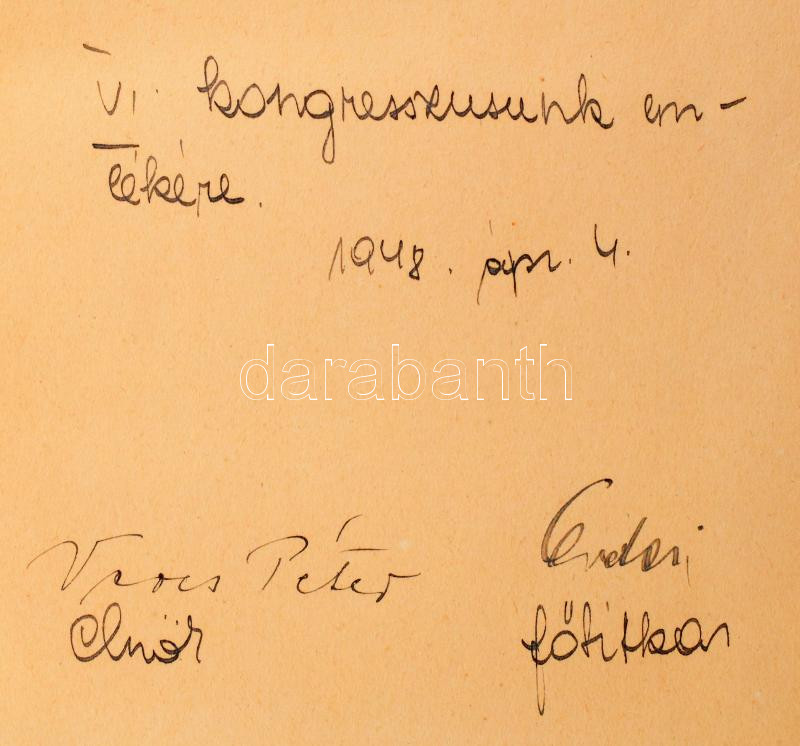 VI. kongresszusunk em-
lékére.
1948. ápr. 4.
darabanth
Veres Péter
Elnök főtitkár